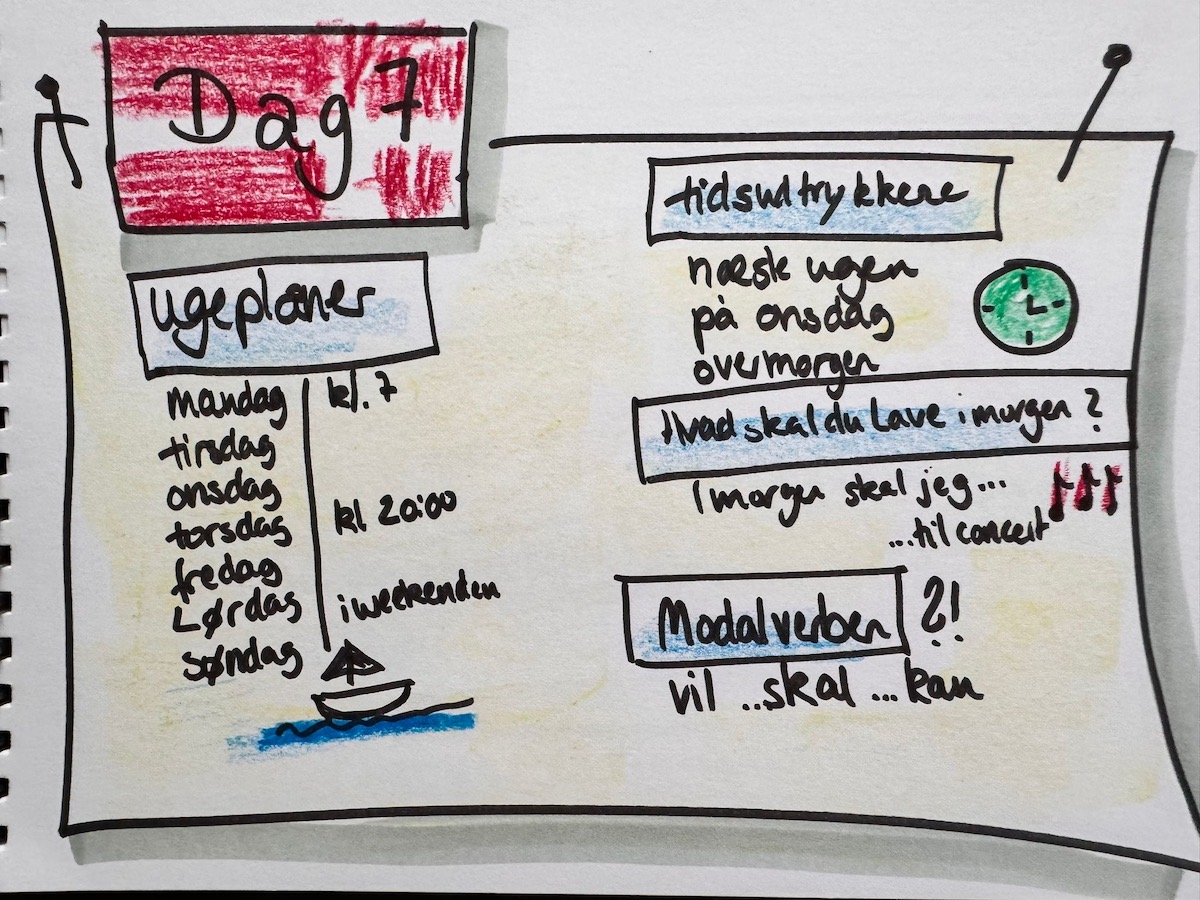 Dag 7
ugeplaner
mandag
tirsdag
onsdag
torsdag
fredag
Lørdag
søndag
kl. 7
kl 20:00
i weekenden
tidsudtrykkene
næste ugen
på onsdag
overmorgen
Hvad skal du Lave i morgen ?
I morgen skal jeg...
...til concert
Modalverben ?!
vil ..skal ...kan